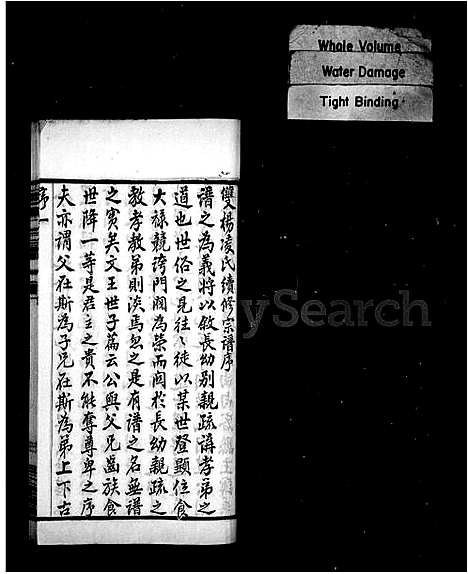 Whole Volume
Water Damage
Tight Binding
雙楊凌氏續修宗譜序
譜之為義將以敘長幼別親疏講孝弟之
道也世俗之見往々徒以某世登顯位食
大祿競誇門閥為榮而闊於長幼親疏之
教孝教弟則淡焉忽之是有譜之名無譜
之實矣文王世子篇云公與父兄齒族食
世降一等是君主之貴不能奪尊卑之序
夫亦謂父在斯為子兄在斯為弟上下古
序一
ySearch